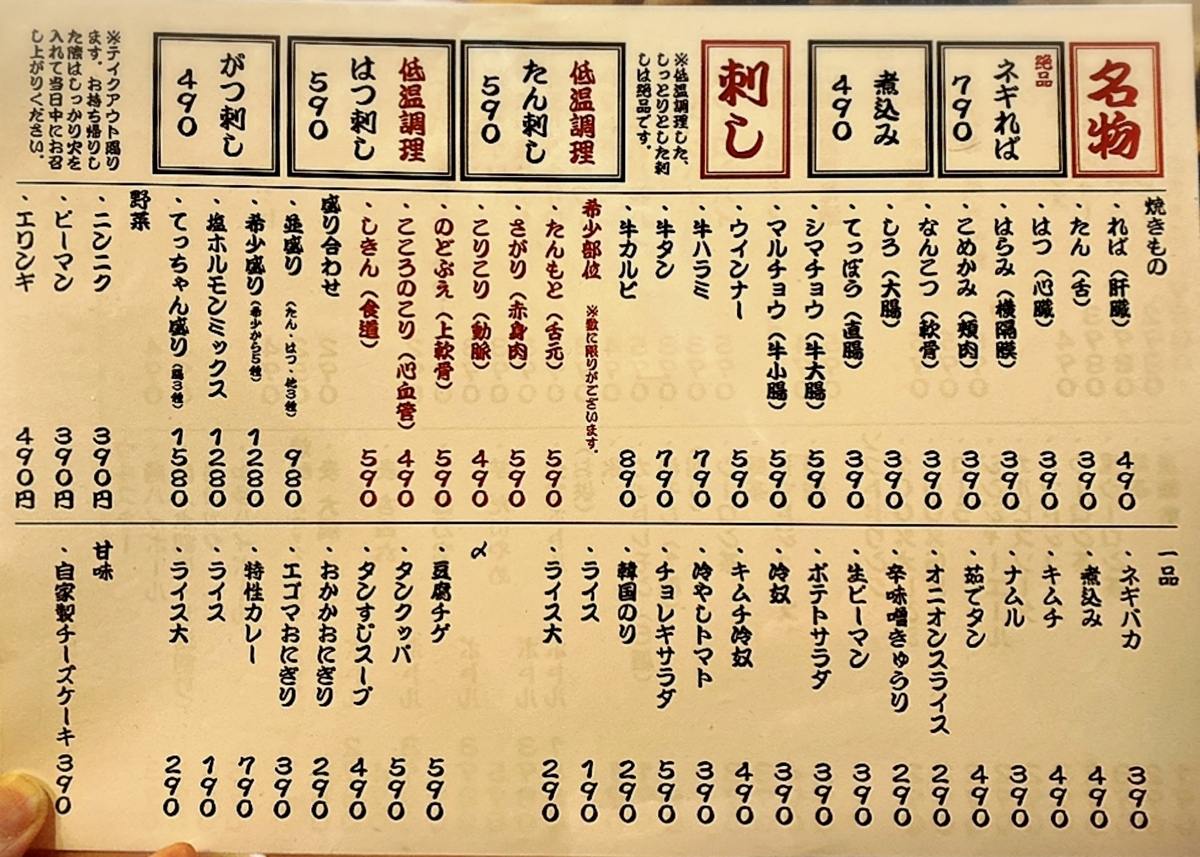 名物
絶品
ネギれば
790
煮込み
490
刺し
※低温調理した、
しっとりとした刺
しは絶品です。
低温調理
たん刺し
590
低温調理
はつ刺し
590
がつ刺し
490
※テイクアウト限り
ます。お持ち帰りし
た際はしっかり火を
入れて当日中にお召
し上がりください。
焼きもの
・れば（肝臓） 490
・たん（舌） 390
・はつ（心臓） 390
・はらみ（横隔膜） 390
・こめかみ（頬肉） 390
・なんこつ（軟骨） 390
・しろ（大腸） 390
・てっぽう（直腸） 390
・シマチョウ（牛大腸） 590
・マルチョウ（牛小腸） 590
・ウインナー 590
・牛ハラミ 790
・牛タン 790
・牛カルビ 890
希少部位 ※数に限りがございます。
・たんもと（舌元） 590
・さがり（赤身肉） 590
・こりこり（動脈） 490
・のどぶえ（上軟骨） 590
・こころのこり（心血管） 490
・しきん（食道） 590
盛り合わせ
・並盛り（たん・はつ・他3種） 980
・希少盛り（希少から5種） 1280
・塩ホルモンミックス 1280
・てっちゃん盛り（腸3種） 1580
野菜
・ニンニク 390円
・ピーマン 390円
・エリンキ 490円
一品
・ネギバカ 390
・煮込み 490
・キムチ 490
・ナムル 390
・茹でタン 490
・オニオンスライス 290
・辛味噌きゅうり 290
・生ピーマン 390
・ポテトサラダ 390
・冷奴 390
・キムチ冷奴 490
・冷やしトマト 390
・チョレギサラダ 590
・韓国のり 290
・ライス 190
・ライス大 290
〆
・豆腐チゲ 590
・タンクッパ 590
・タンすじスープ 490
・おかかおにぎり 290
・エゴマおにぎり 390
・特性カレー 790
・ライス 190
・ライス大 290
甘味
・自家製チーズケーキ 390